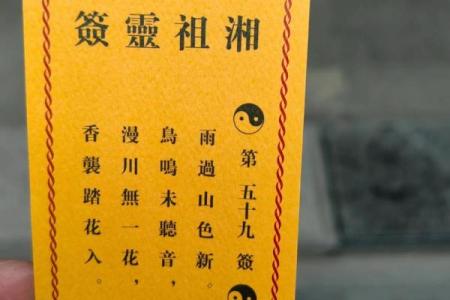 湘祖靈簽
第五十九簽
雨過山色新。
鳥鳴未聽音，
漫川無一花，
香襲踏花入。